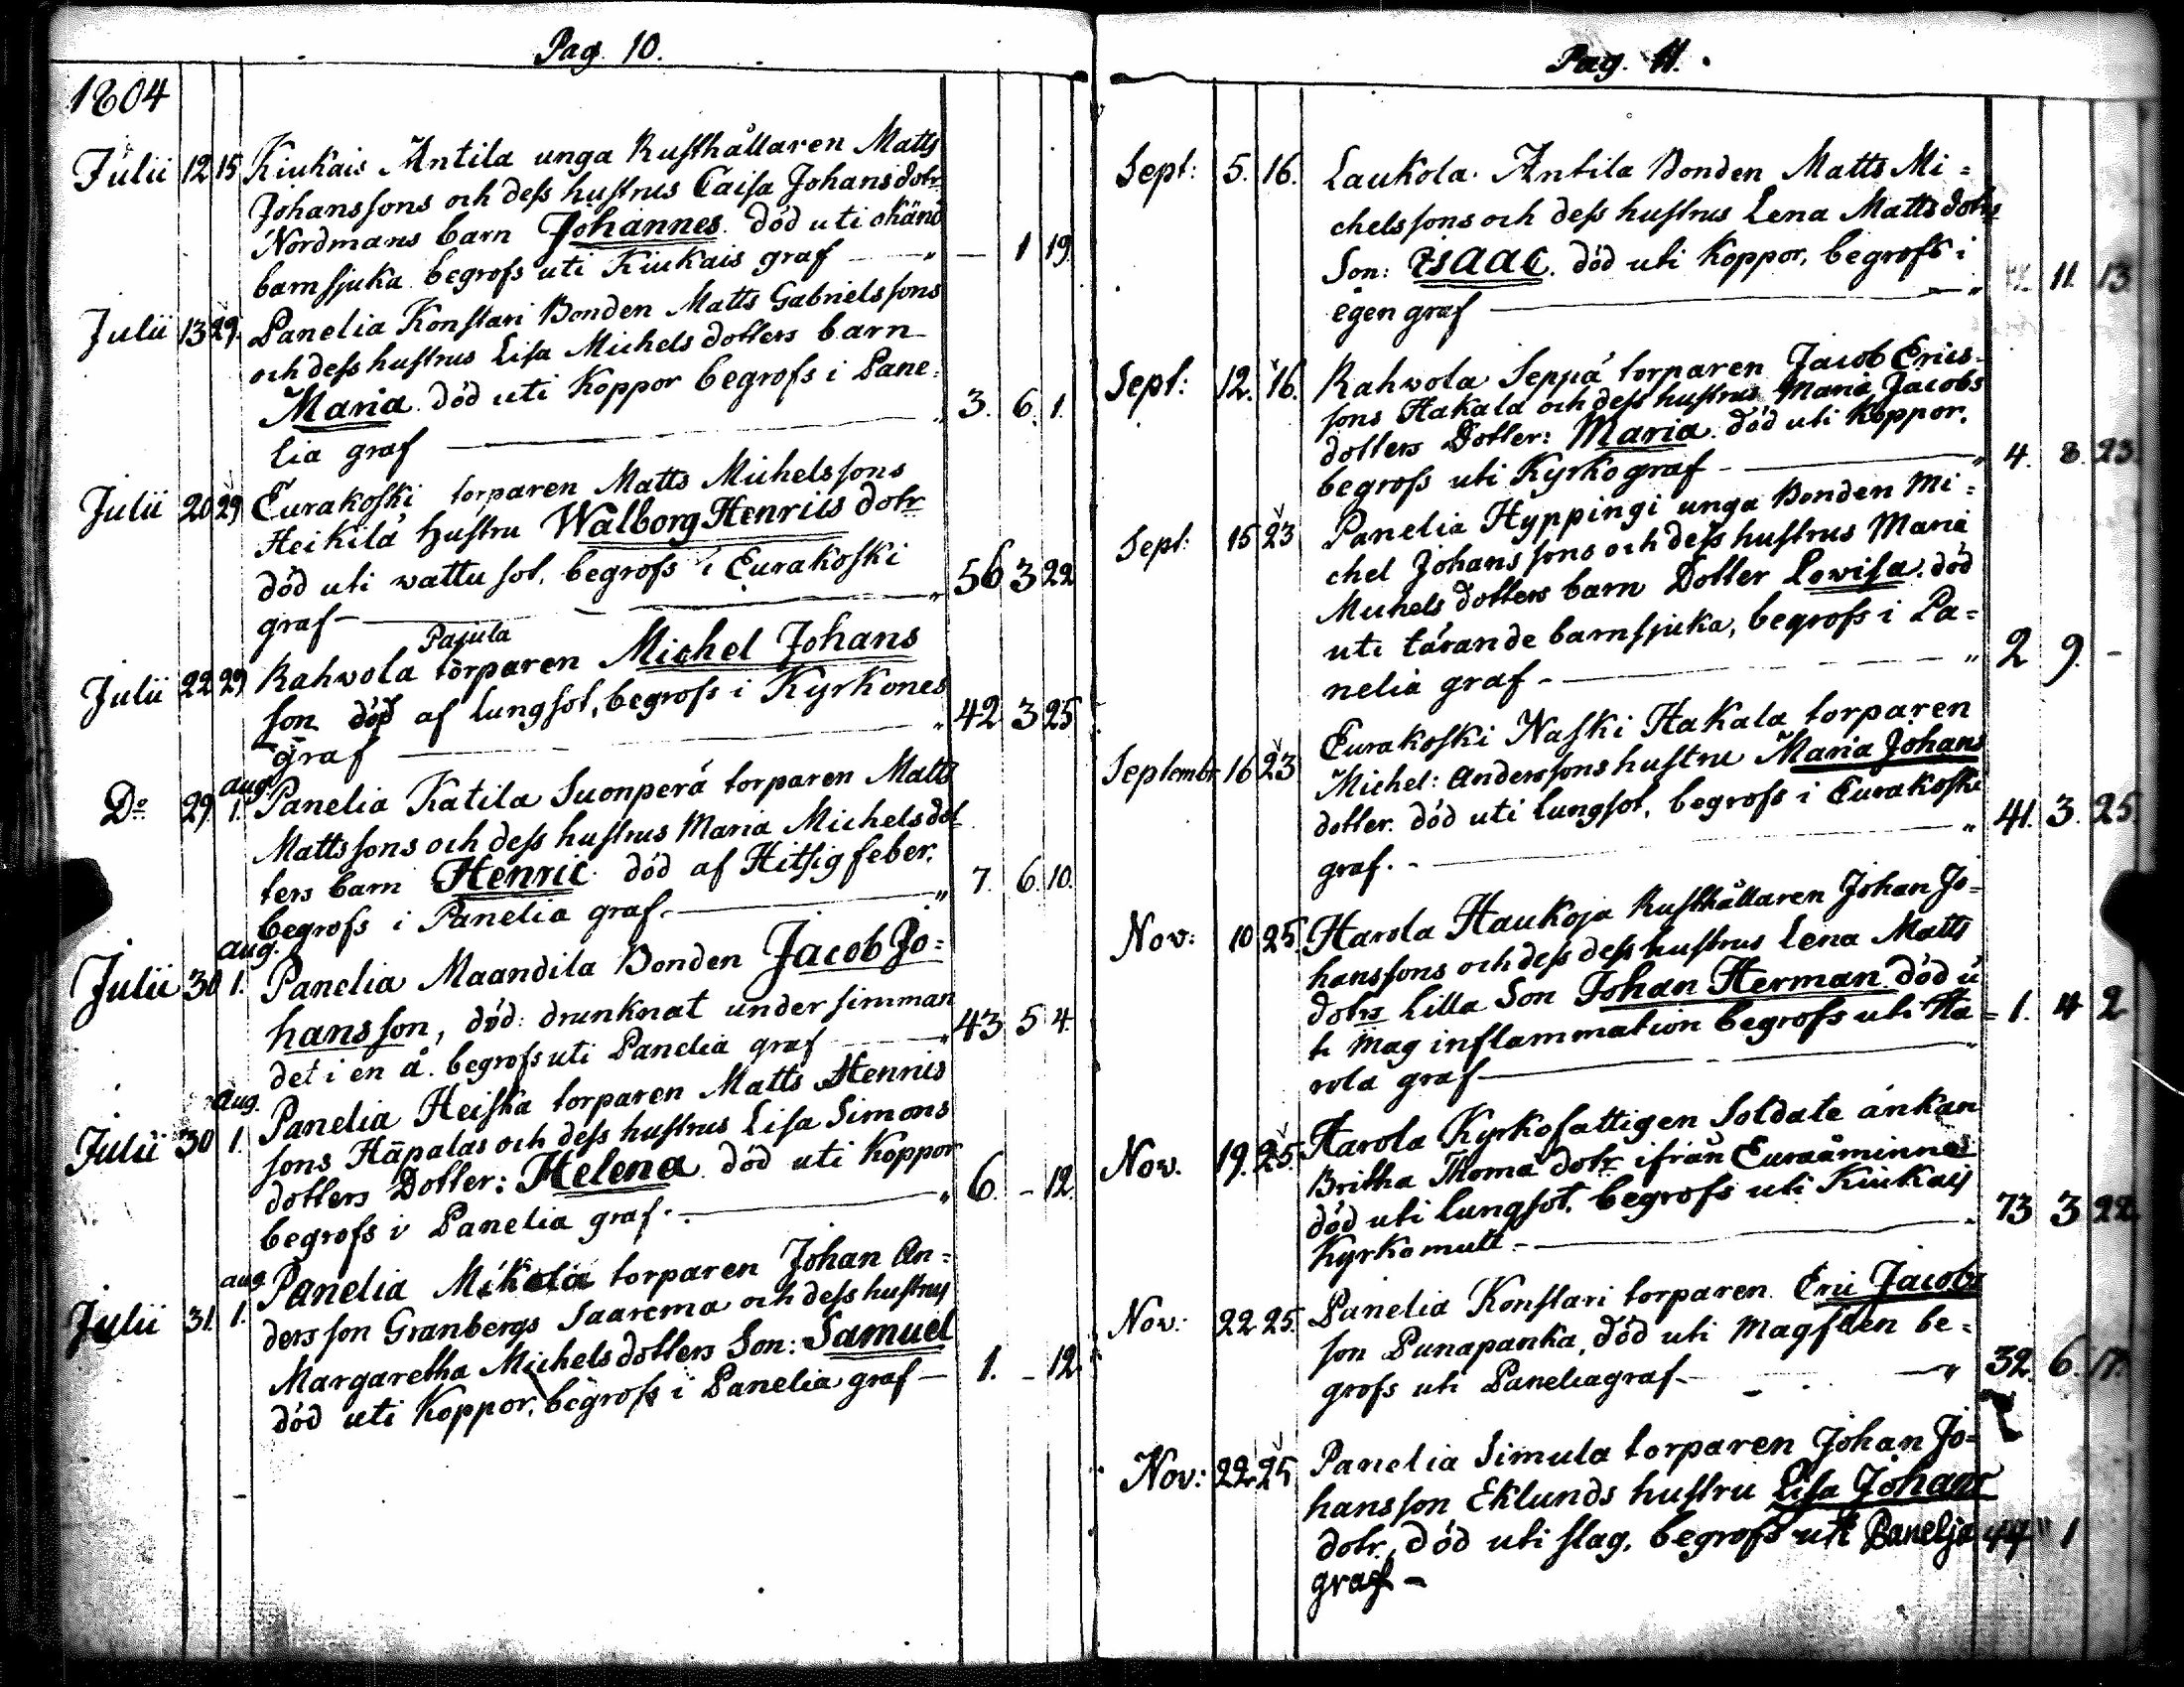 Pag. 10.
1804
Julii 12 15 Kiukais Antila unga Rusthållaren Matts
Johanssons och dess hustrus Caisa Johansdotr
Nordmans barn Johannes. död uti okänd
barnsjuka begrofs uti Kiukais graf — " — 1 19.
Julii 13 29. Panelia Konstari Bonden Matts Gabrielssons
och dess hustrus Lisa Michelsdotters barn
Maria. död uti Koppor begrofs i Pane-
lia graf — " 3. 6. 1.
Julii 20 29 Eurakoski torparen Matts Michelssons
Heikilä hustru Walborg Henrics dotr
död uti wattusot, begrofs i Eurakoski
graf — " 56 3 22
Pajula
Julii 22 29 Rahvola torparen Michel Johans
son död af lungsot, begrofs i Kyrkones
graf — " 42 3 25
aug.
Do 29 1. Panelia Katila Suonperä torparen Matts
Mattssons och dess hustrus Maria Michelsdot
ters barn Henric. död af Hitsig feber.
begrofs i Panelia graf. — " 7. 6. 10.
aug.
Julii 30 1. Panelia Maandila Bonden Jacob Jo=
hansson, död: drunknat under simman
det i en å. begrofs uti Panelia graf — " 43 5 4.
aug.
Julii 30 1. Panelia Heiska torparen Matts Henrics
sons Häpalas och dess hustrus Lisa Simons
dotters Dotter: Helena. död uti Koppor
begrofs i Panelia graf. — " 6. - 12.
aug
Julii 31. 1. Panelia Mikola torparen Johan An=
dersson Granbergs Saarema och dess hustrus
Margaretha Michelsdotters Son: Samuel
död uti Koppor, begrofs i Panelia graf — 1. - 12.
Pag. 11.
Sept: 5. 16. Laukola Antila Bonden Matts Mi=
chelssons och dess hustrus Lena Mattsdotrs
Son: Isaac. död uti Koppor, begrofs i
egen graf — " 11. 13
Sept: 12. 16. Rahvola Seppä torparen Jacob Erics-
sons Hakala och dess hustrus Maria Jacobs
dotters Dotter: Maria. död uti Koppor.
begrofs uti Kyrko graf — " 4. 8. 23.
Sept: 15 23 Panelia Hyppingi unga Bonden Mi=
chel Johanssons och dess hustrus Maria
Michels dotters barn Dotter Lovisa. död
uti tärande barnsjuka, begrofs i Pa=
nelia graf — " 2 9. -
Septembr. 16 23 Eurakoski Naski Hakala torparen
Michel: Anderssons hustru Maria Johans
dotter. död uti lungsot, begrofs i Eurakoski
graf. — " 41. 3. 25
Nov: 10 25. Harola Haukoja Rusthållaren Johan Jo=
hanssons och dess dess hustrus Lena Matts
dotrs lilla Son Johan Herman död u
ti Mag inflammation begrofs uti Ha= 1. 4 2
rola graf —
Nov. 19. 25. Harola Kyrkofattigen Soldate änkan
Britha Thoma dotr ifrån Euraåminne
död uti lungsot. begrofs uti Kiukais
Kyrkomull — " 73 3 22
Nov: 22 25. Panelia Konstari torparen Eric Jacobs
son Punapanka, död uti Magsten be=
grofs uti Paneliagraf — " 32. 6. 17.
Nov: 22 25 Panelia Simula torparen Johan Jo=
hansson Eklunds hustru Lisa Johans
dotr. död uti slag, begrofs uti Panelia 44 " 1
graf -